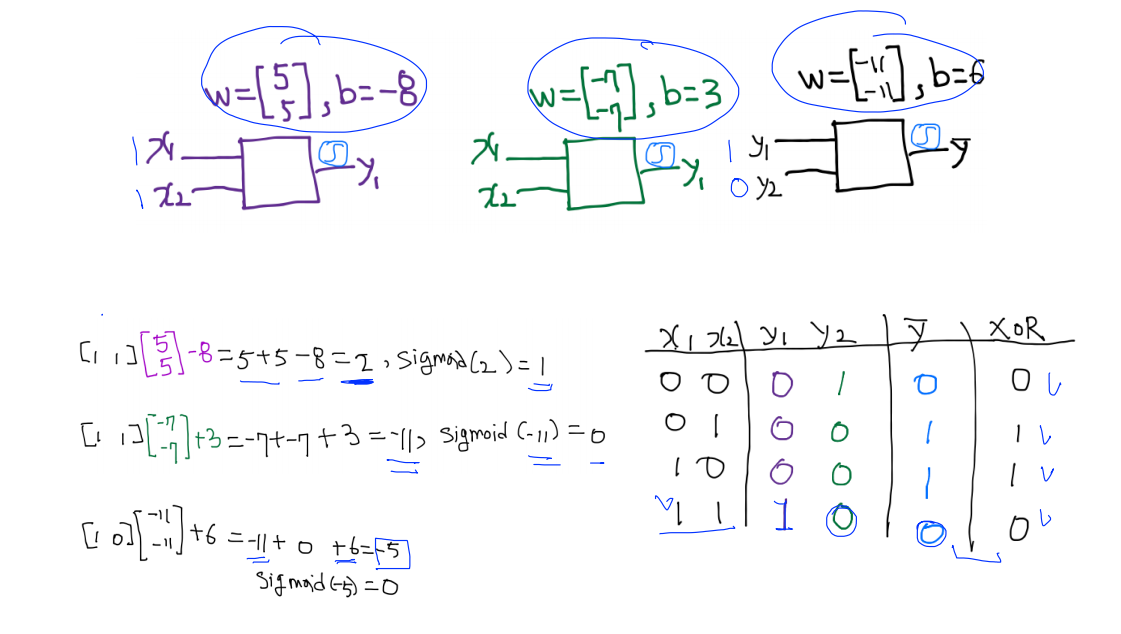 w=[5 5], b=-8
w=[-7 -7], b=3
w=[-11 -11], b=6
1 x1
1 x2
S
y1
x1
x2
S
y1
1 y1
0 y2
S
y̅
[1 1][5 5]-8=5+5-8=2, sigmoid(2)=1
[1 1][-7 -7]+3=-7+-7+3=-11, sigmoid(-11)=0
[1 0][-11 -11]+6=-11+0+6=-5
sigmoid(-5)=0
x1 x2 y1 y2 y̅ XOR
0 0 0 1 0 0
0 1 0 0 1 1
1 0 0 0 1 1
1 1 1 0 0 0